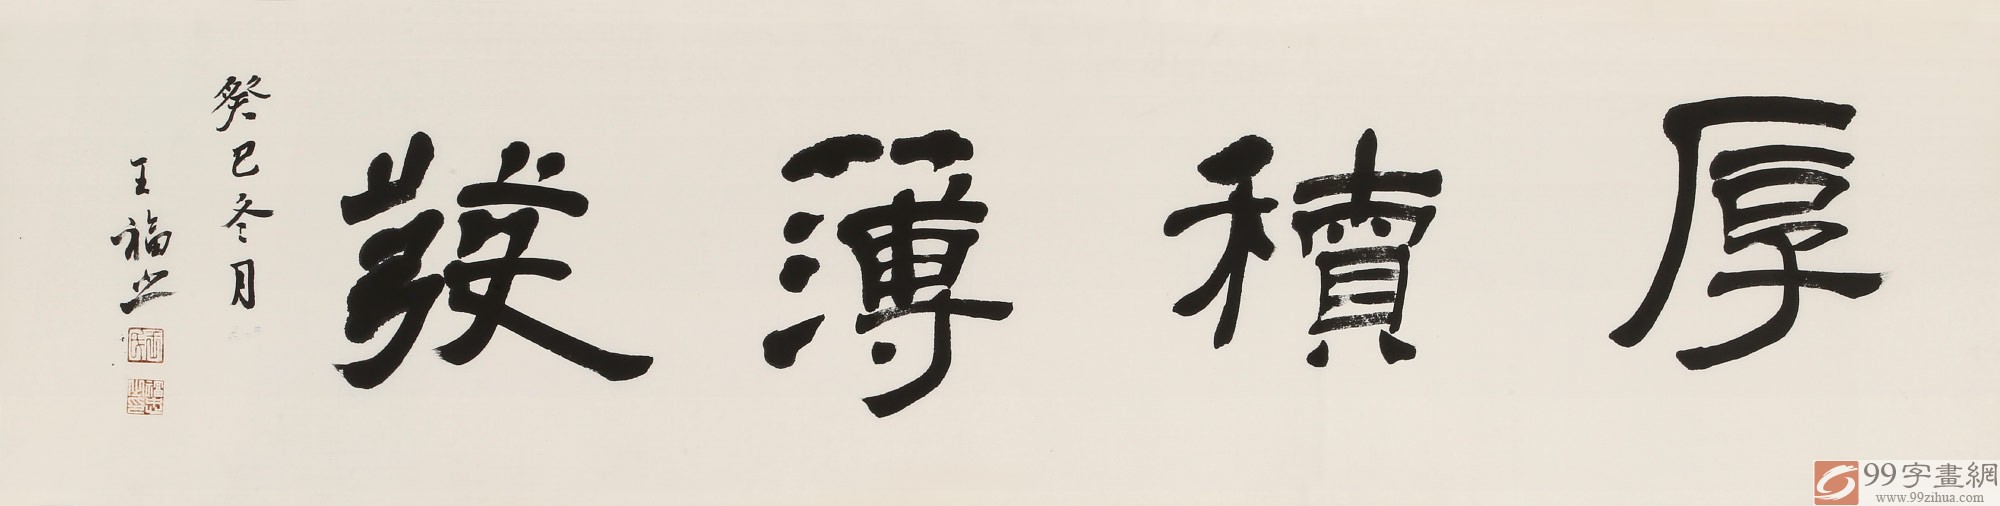 厚積薄發
癸巳冬月
王福
99字畫網
www.99zihua.com